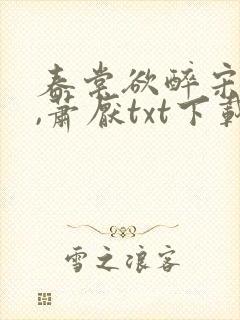 春棠欲醉宋
,萧厌txt下载
雪之浪客